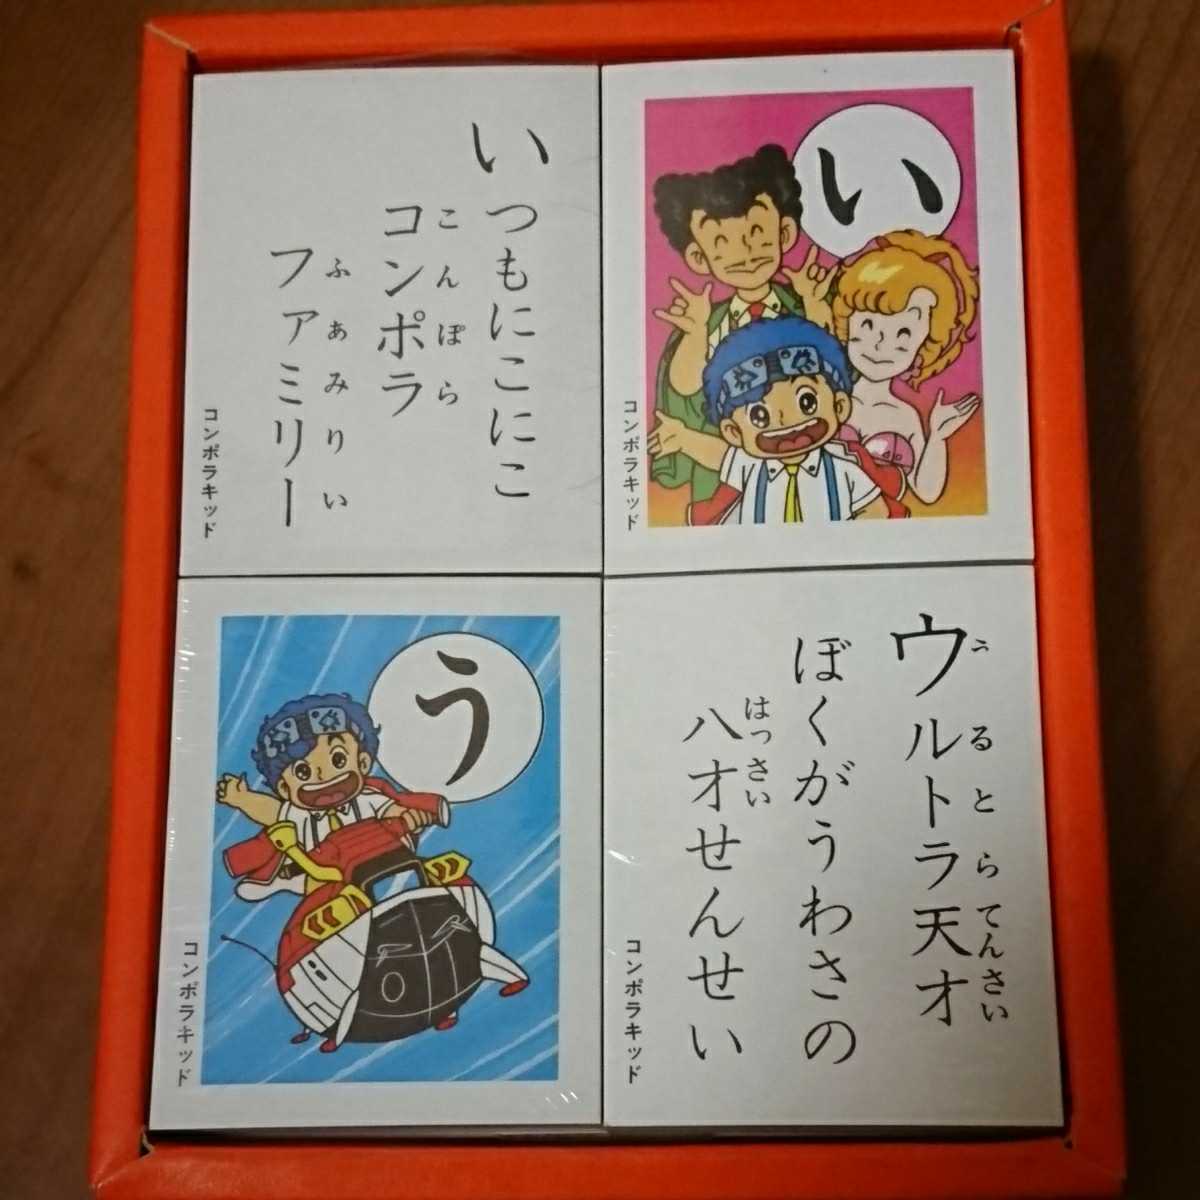 いつもにこにこ
コンポラ
こんぽら
ファミリー
ふぁみりい
コンポラキッド
い
コンポラキッド
う
コンポラキッド
ウルトラ天才
うるとらてんさい
ぼくがうわさの
八才せんせい
はっさい
コンポラキッド